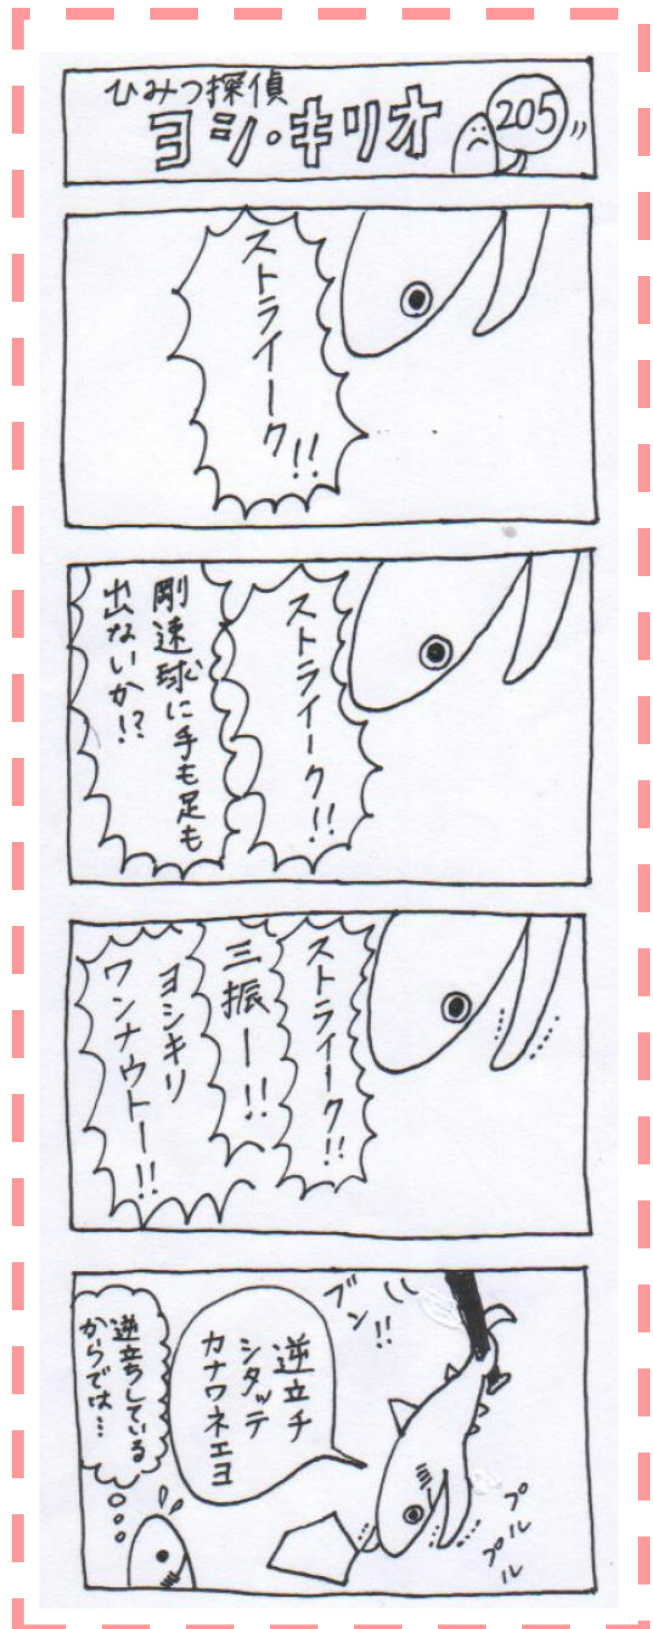 ひみつ探偵
ヨシ・キリオ
205
ストライーク!!
ストライーク!!
剛速球に手も足も
出ないか!?
ストライーク!!
三振ー!!
ヨシキリ
ワンナウトー!!
ブン!!
逆立チ
シタッテ
カナワネエヨ
プルプル
逆立ちしている
からでは…